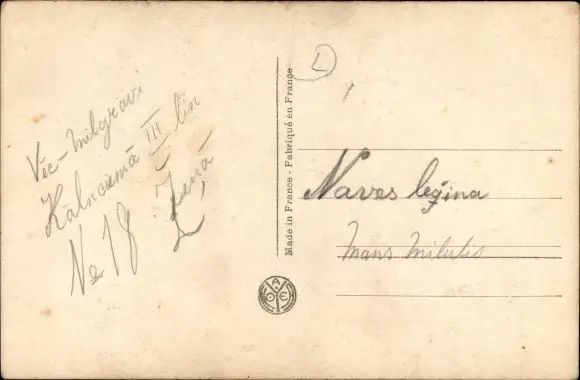 Vec-Milgravi
Kalnciemā III lin
№ 18 Ženā
L
Made in France - Fabriqué en France
Naves leģina
Mans Milulis